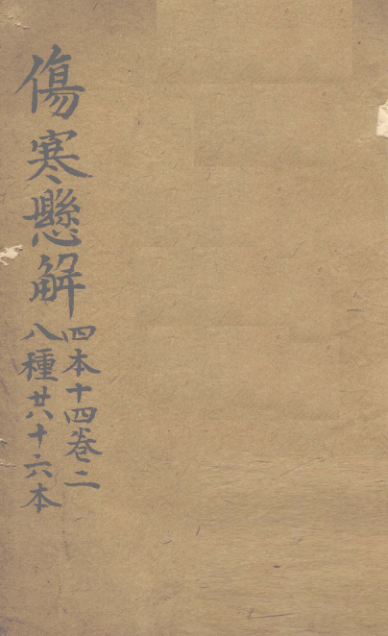 傷寒懸解
四本十四卷二
八種共十六本